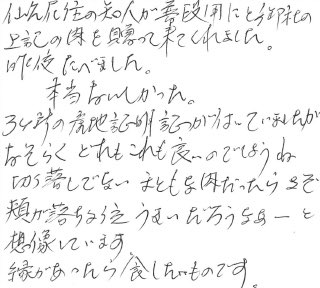 仙台在住の知人が普段用にと御社の
上記の肉を買って来てくれました。
昨夜たべました。
本当おいしかった。
産地証明証つが付いていましたが
おそらくどれもこれも良いのでしょうね
切り落しでない まともな肉だったらまず
頬が落ちる位うまいだろうなあーと
想像しています
縁があったら食したいものです。